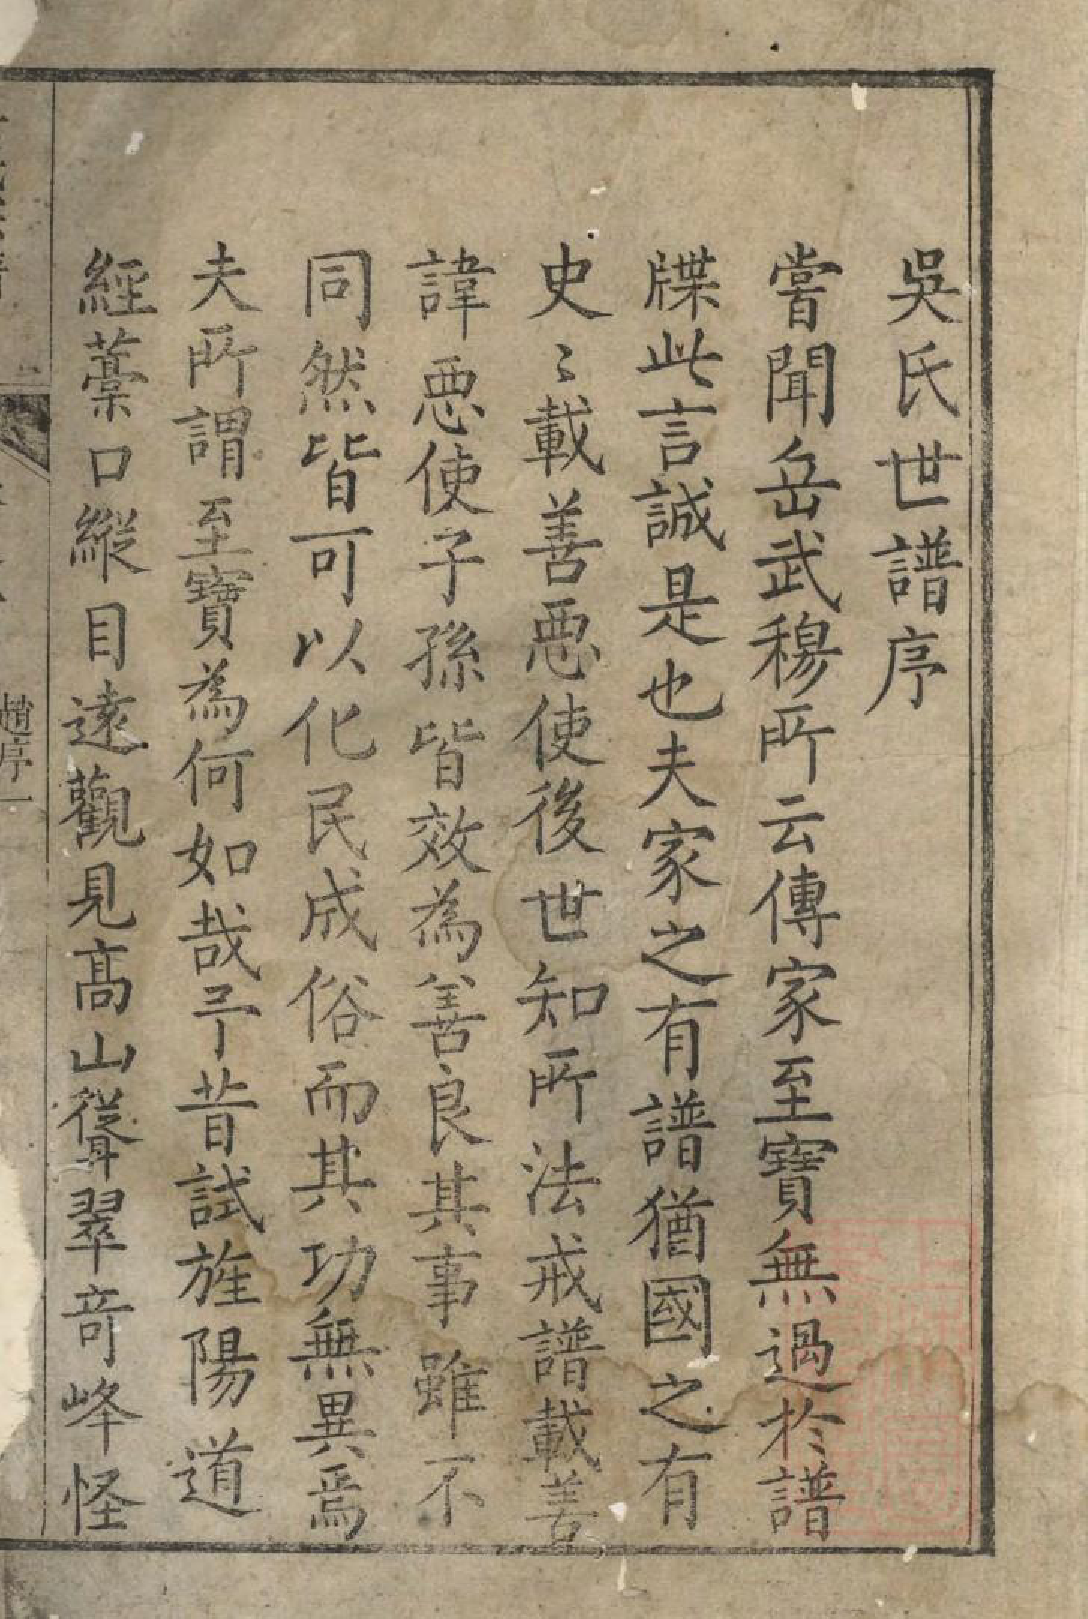 吳氏世譜序
嘗聞岳武穆所云傳家至寶無過於譜
牒此言誠是也夫家之有譜猶國之有
史〻載善惡使後世知所法戒譜載善
諱惡使子孫皆效為善良其事雖不
同然皆可以化民成俗而其功無異焉
夫所謂至寶為何如哉予昔試旌陽道
經藁口縱目遠觀見高山聳翠奇峰怪
趙序一